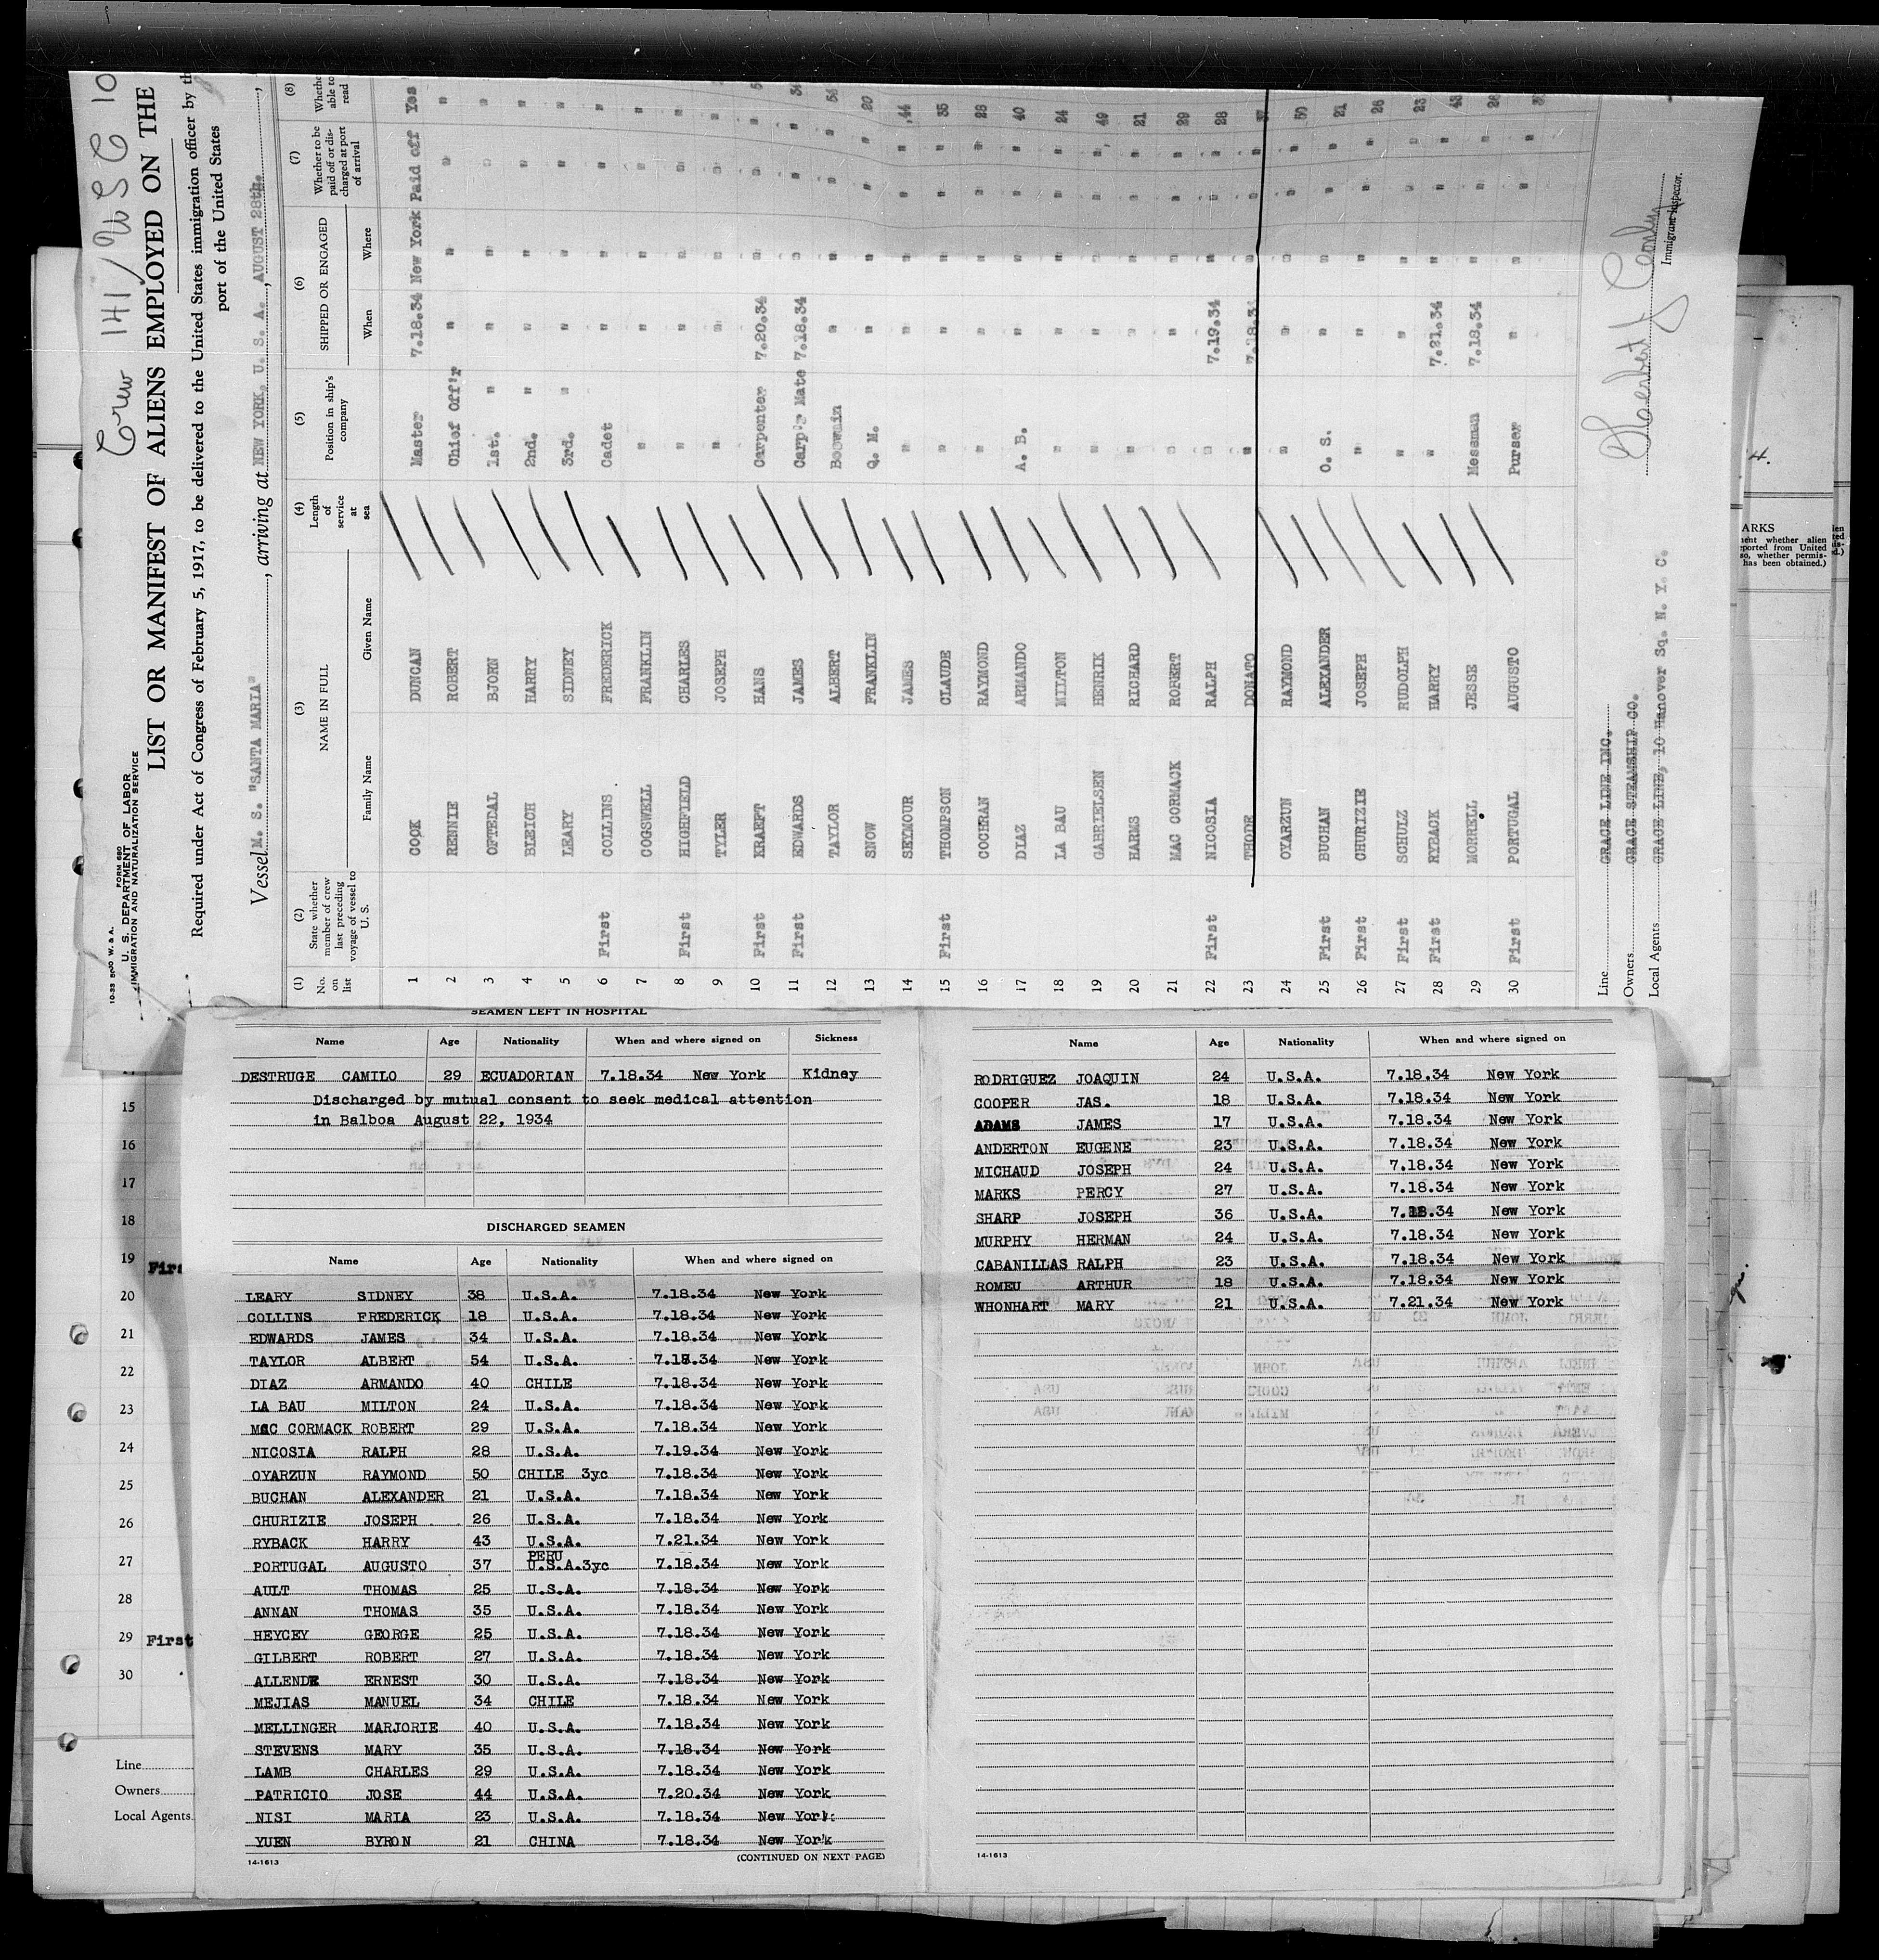 Crew 141/
10-33 W. & A.
FORM 680
U. S. DEPARTMENT OF LABOR
IMMIGRATION AND NATURALIZATION SERVICE
LIST OR MANIFEST OF ALIENS EMPLOYED ON THE
Required under Act of Congress of February 5, 1917, to be delivered to the United States immigration officer by
port of the United States
Vessel M. S. "SANTA MARIA", arriving at NEW YORK. U. S. A., AUGUST 28th.
(1) No. on list (2) State whether member of crew last preceding voyage of vessel to U. S. (3) NAME IN FULL Family Name Given Name (4) Length of service at sea (5) Position in ship's company (6) SHIPPED OR ENGAGED When Where (7) Whether to be paid off or discharged at port of arrival (8) Whether able to read
1 COOK DUNCAN Master 7.18.34 New York Paid off Yes
2 RENNIE ROBERT Chief Off'r " " " "
3 OFTEDAL BJORN 1st. " " " " "
4 BLEICH HARRY 2nd. " " " " "
5 LEARY SIDNEY 3rd. " " " " "
6 First COLLINS FREDERICK Cadet " " " "
7 COGSWELL FRANKLIN " " " " "
8 First HIGHFIELD CHARLES " " " " "
9 TYLER JOSEPH " " " " "
10 First KRAEFT HANS Carpenter 7.20.34 " " "
11 First EDWARDS JAMES Carp's Mate 7.18.34 " " " 34
12 TAYLOR ALBERT Boswain " " " " 54
13 SNOW FRANKLIN Q. M. " " " " 20
14 SEYMOUR JAMES " " " " " 44
15 First THOMPSON CLAUDE " " " " " 35
16 COCHRAN RAYMOND " " " " " 28
17 DIAZ ARMANDO A. B. " " " " 40
18 LA BAU MILTON " " " " " 24
19 GABRIELSEN HENRIK " " " " " 49
20 HARMS RICHARD " " " " " 21
21 MAC CORMACK ROBERT " " " " " 29
22 First NICOSIA RALPH " 7.19.34 " " " 28
23 THODE DONATO " 7.18.34 " " "
24 OYARZUN RAYMOND " " " " " 50
25 First BUCHAN ALEXANDER O. S. " " " " 21
26 First CHURIZIE JOSEPH " " " " " 26
27 First SCHULZ RUDOLPH " " " " " 23
28 First RYBACK HARRY " 7.21.34 " " " 43
29 MORRELL JESSE Messman 7.18.34 " " " 26
30 First PORTUGAL AUGUSTO Purser " " " "
Line GRACE LINE INC.
Owners GRACE STEAMSHIP CO.
Local Agents GRACE LINE, 10 Hanover Sq. N. Y. C.
Immigrant Inspector.
SEAMEN LEFT IN HOSPITAL
Name Age Nationality When and where signed on Sickness
DESTRUGE CAMILO 29 ECUADORIAN 7.18.34 New York Kidney
Discharged by mutual consent to seek medical attention
in Balboa August 22, 1934
DISCHARGED SEAMEN
Name Age Nationality When and where signed on
LEARY SIDNEY 38 U.S.A. 7.18.34 New York
COLLINS FREDERICK 18 U.S.A. 7.18.34 New York
EDWARDS JAMES 34 U.S.A. 7.18.34 New York
TAYLOR ALBERT 54 U.S.A. 7.18.34 New York
DIAZ ARMANDO 40 CHILE 7.18.34 New York
LA BAU MILTON 24 U.S.A. 7.18.34 New York
MAC CORMACK ROBERT 29 U.S.A. 7.18.34 New York
NICOSIA RALPH 28 U.S.A. 7.19.34 New York
OYARZUN RAYMOND 50 CHILE 3yc 7.18.34 New York
BUCHAN ALEXANDER 21 U.S.A. 7.18.34 New York
CHURIZIE JOSEPH 26 U.S.A. 7.18.34 New York
RYBACK HARRY 43 U.S.A. 7.21.34 New York
PORTUGAL AUGUSTO 37 PERU U.S.A.3yc 7.18.34 New York
AULT THOMAS 25 U.S.A. 7.18.34 New York
ANNAN THOMAS 35 U.S.A. 7.18.34 New York
HEYCEY GEORGE 25 U.S.A. 7.18.34 New York
GILBERT ROBERT 27 U.S.A. 7.18.34 New York
ALLENDE ERNEST 30 U.S.A. 7.18.34 New York
MEJIAS MANUEL 34 CHILE 7.18.34 New York
MELLINGER MARJORIE 40 U.S.A. 7.18.34 New York
STEVENS MARY 35 U.S.A. 7.18.34 New York
LAMB CHARLES 29 U.S.A. 7.18.34 New York
PATRICIO JOSE 44 U.S.A. 7.20.34 New York
NISI MARIA 23 U.S.A. 7.18.34 New York
YUEN BYRON 21 CHINA 7.18.34 New York
14-1613 (CONTINUED ON NEXT PAGE)
Name Age Nationality When and where signed on
RODRIGUEZ JOAQUIN 24 U.S.A. 7.18.34 New York
COOPER JAS. 18 U.S.A. 7.18.34 New York
ADAMS JAMES 17 U.S.A. 7.18.34 New York
ANDERTON EUGENE 23 U.S.A. 7.18.34 New York
MICHAUD JOSEPH 24 U.S.A. 7.18.34 New York
MARKS PERCY 27 U.S.A. 7.18.34 New York
SHARP JOSEPH 36 U.S.A. 7.18.34 New York
MURPHY HERMAN 24 U.S.A. 7.18.34 New York
CABANILLAS RALPH 23 U.S.A. 7.18.34 New York
ROMEU ARTHUR 18 U.S.A. 7.18.34 New York
WHONHART MARY 21 U.S.A. 7.21.34 New York
14-1613
15
16
17
18
19 First
20
21
22
23
24
25
26
27
28
29 First
30
Line
Owners
Local Agents
4.
ARKS
ment whether alien
eported from United
so, whether permis-
has been obtained.)